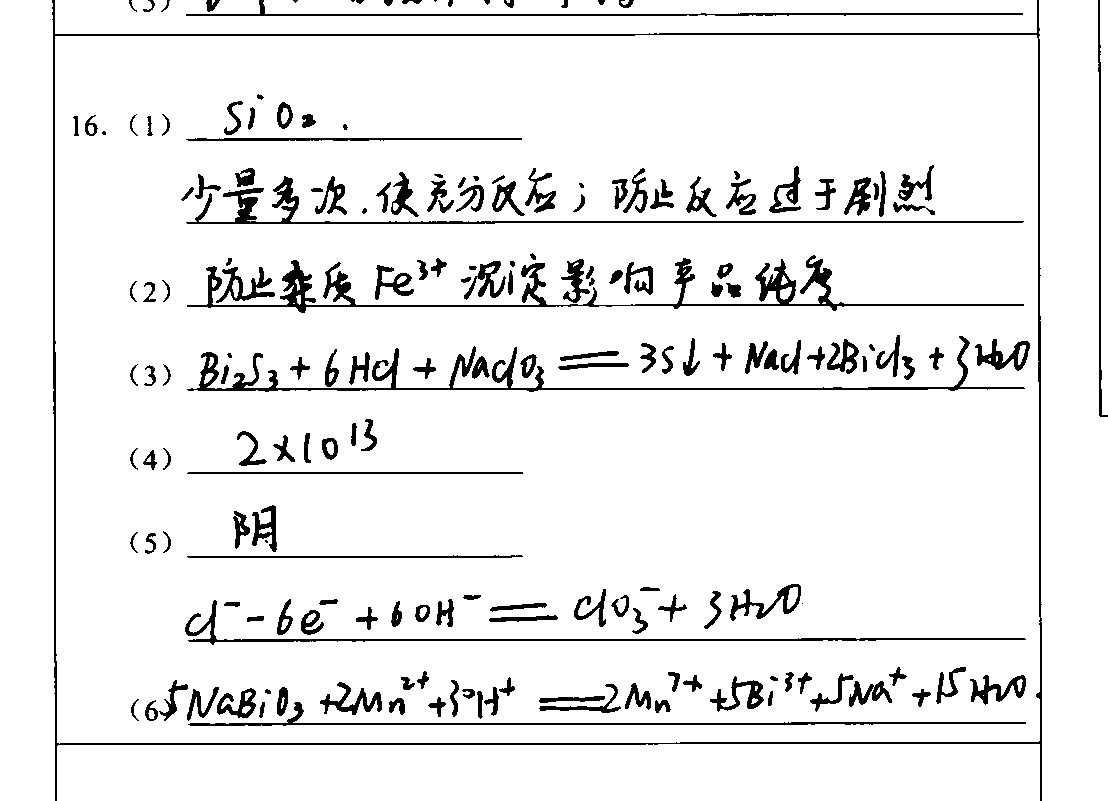 16.（1） SiO₂.
少量多次.使充分反应；防止反应过于剧烈
（2） 防止杂质 Fe³⁺ 沉淀影响产品纯度
（3） Bi₂S₃ + 6HCl + NaClO₃ == 3S↓ + NaCl+2BiCl₃ + 3H₂O
（4） 2×10¹³
（5） 阴
Cl⁻ - 6e⁻ + 6OH⁻ == ClO₃⁻ + 3H₂O
（6） 5NaBiO₃ +2Mn²⁺ +30H⁺ == 2Mn⁷⁺ +5Bi³⁺ +5Na⁺ +15H₂O.